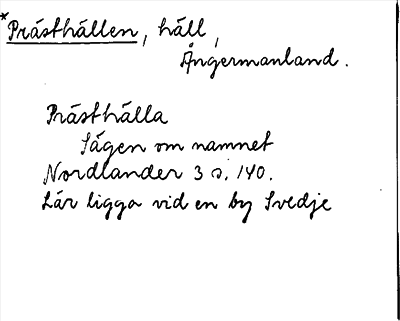 *Prästhällen, häll,
Ångermanland.
Prästhälla
Sägen om namnet
Nordlander 3 s. 140.
Lär ligga vid en by Svedje